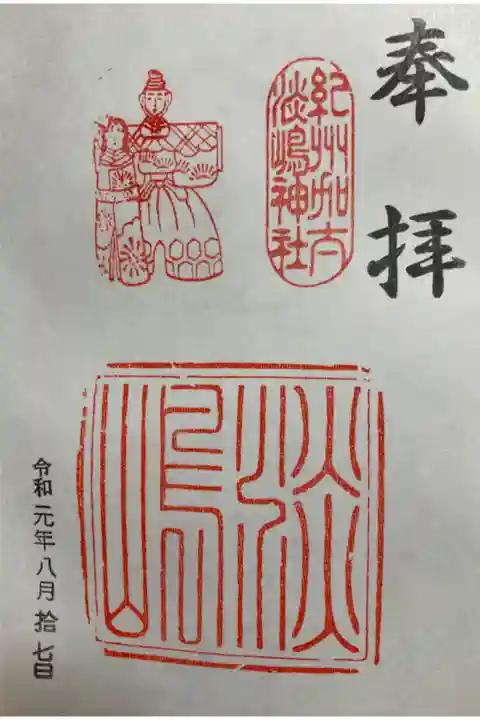 奉拝
紀州加太
淡嶋神社
淡嶋
令和元年八月拾七日